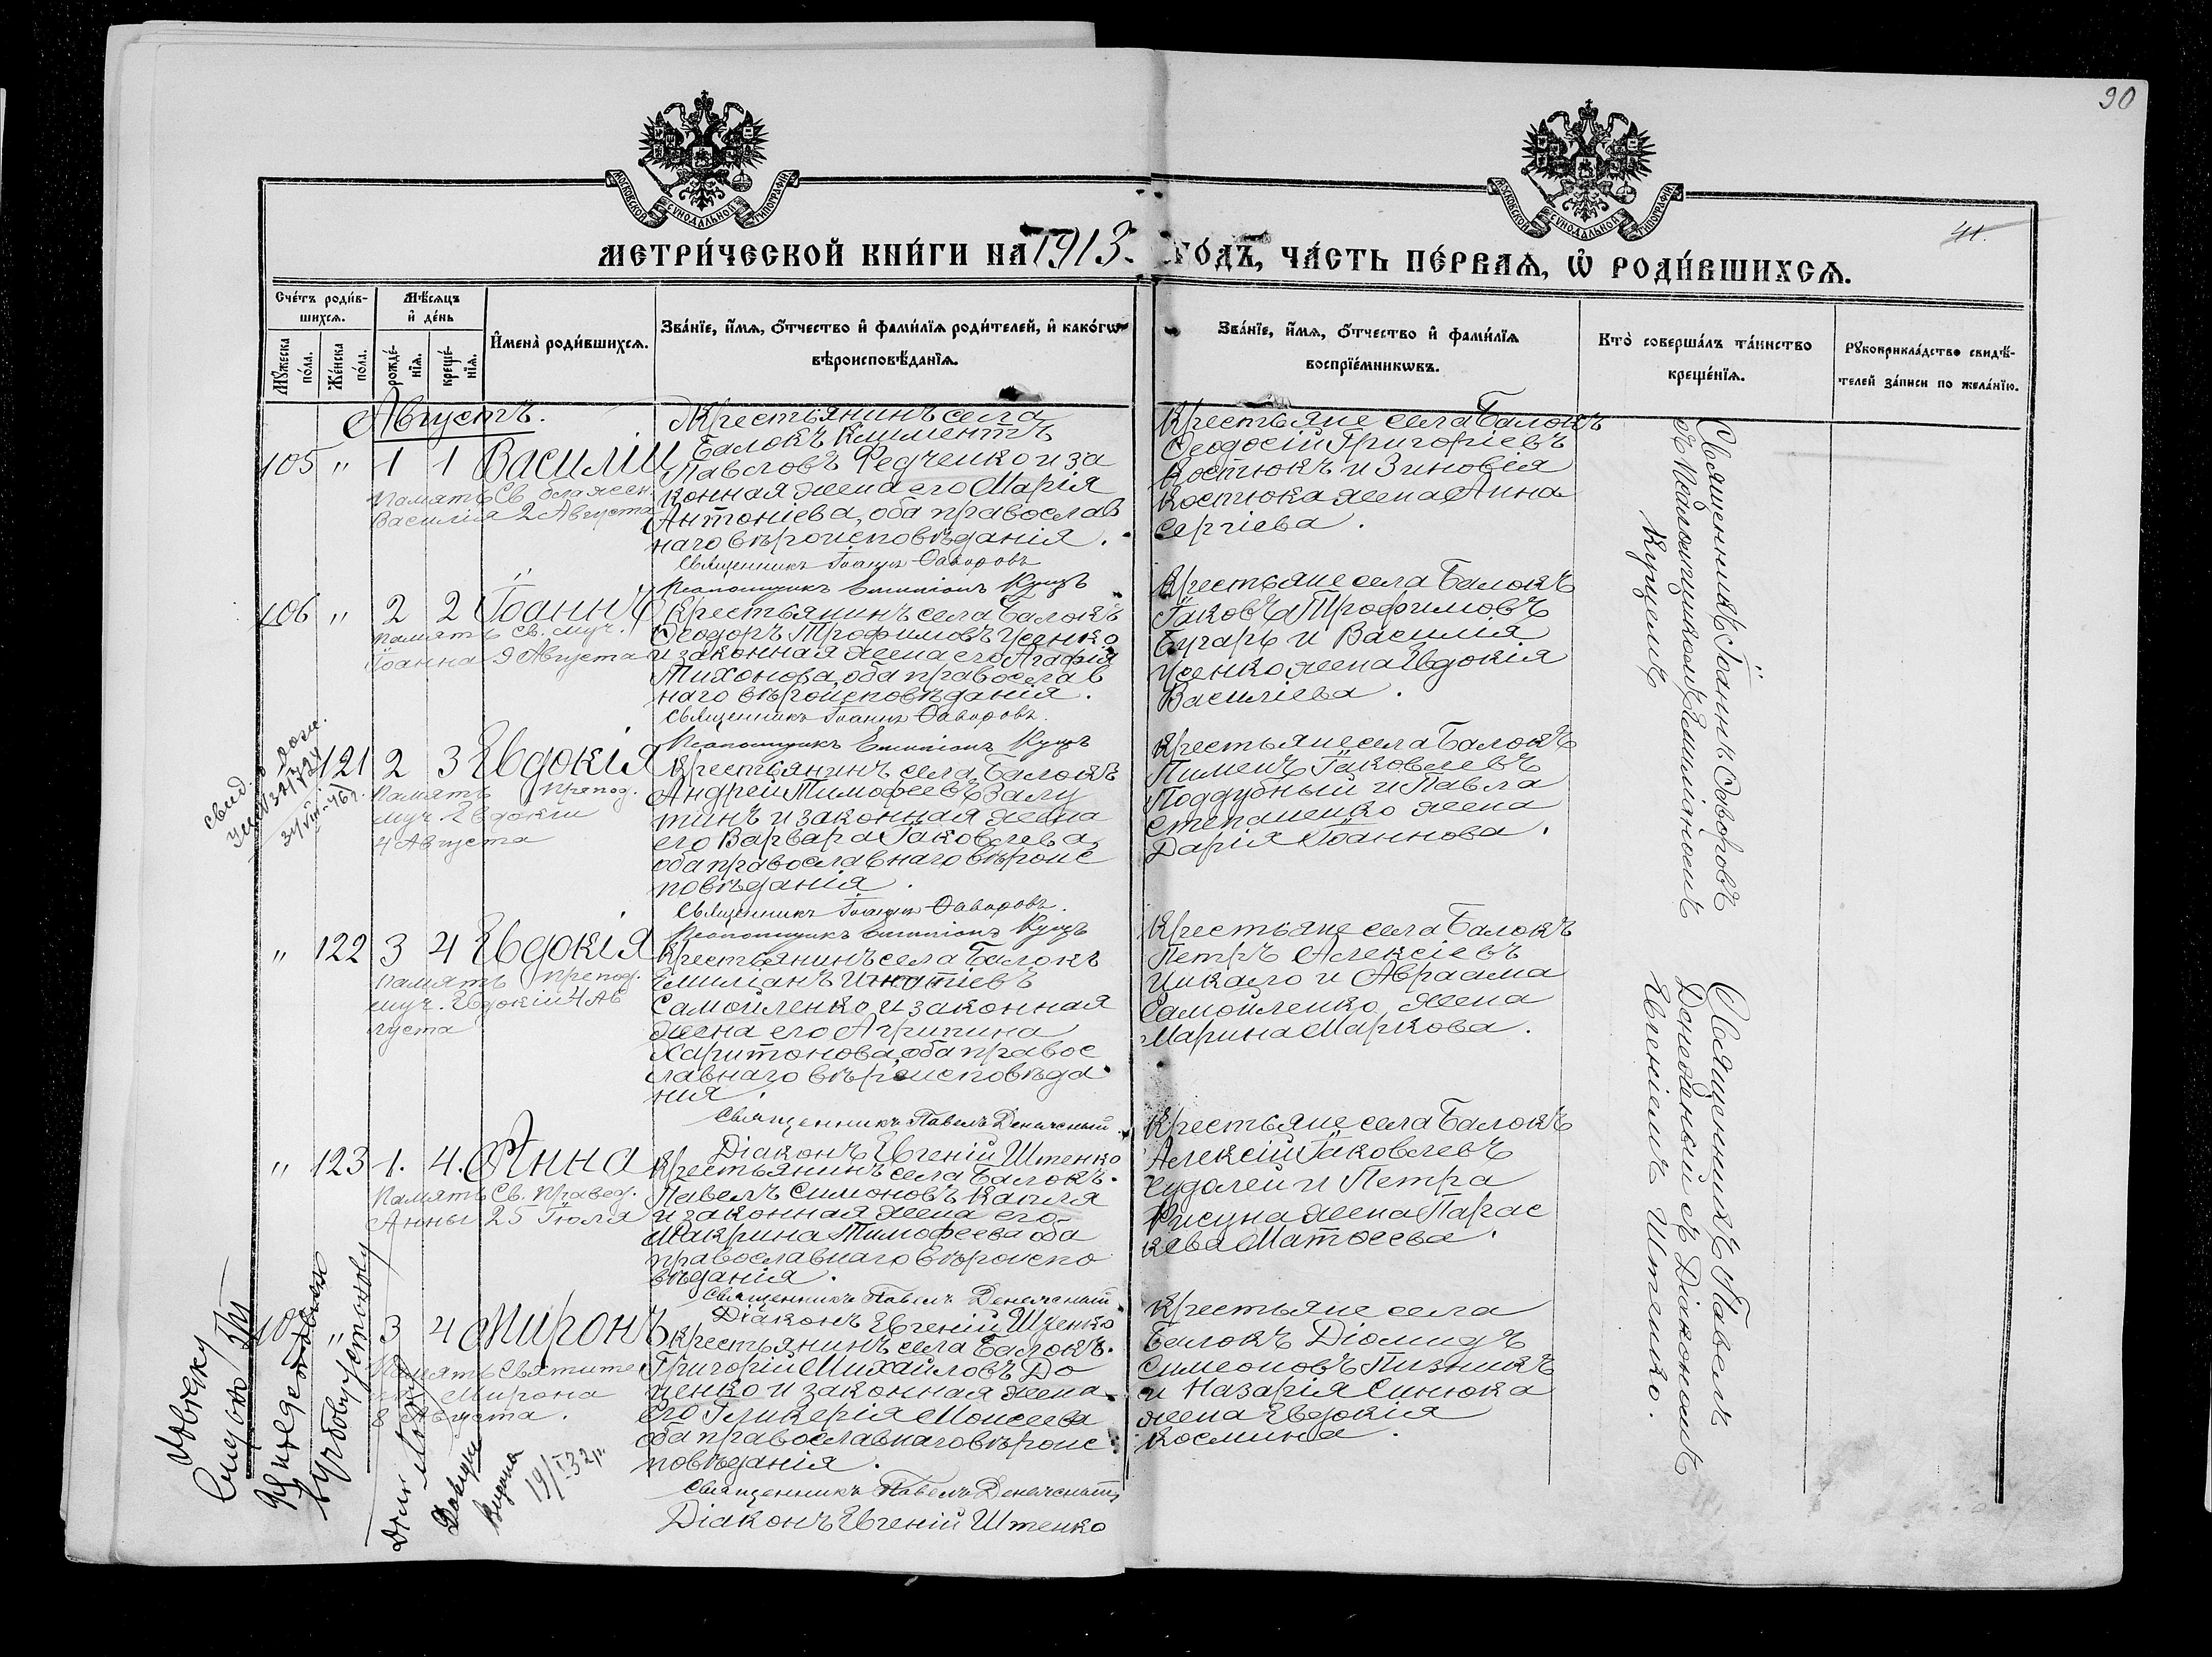 90
41.
МОСКОВСКОЙ СѴНОДАЛЬНОЙ ТИПОГРАФІИ
МОСКОВСКОЙ СѴНОДАЛЬНОЙ ТИПОГРАФІИ
МЕТРИ́ЧЕСКОЙ КНИ́ГИ НА 1913. ГО́ДЪ, ЧА́СТЬ ПЕ́РВАѦ, Ѡ҆ РОДИ́ВШИХСѦ.
Сче́тъ роди́в-
шихсѧ.
Мѣ́сѧцъ
и҆ де́нь
Мꙋ́жеска
по́ла.
Же́нска
по́ла.
рожде́-
нїѧ.
креще́-
нїѧ.
И҆мена̀ роди́вшихсѧ.
Зва́нїе, и҆́мѧ, ѻ҆́тчество и҆ фами́лїѧ роди́телей, и҆ како́гѡ
вѣроисповѣ́данїѧ.
Зва́нїе, и҆́мѧ, ѻ҆́тчество и҆ фами́лїѧ
воспрїе́мникѡвъ.
Кто̀ соверша́лъ та́инство
креще́нїѧ.
Рꙋкоприкла́дство свидѣ́-
телей за́писи по жела́нїю.
Августъ.
105 " 1 1 Василій
Память Св. блажен.
Василія 2 Августа
Крестьянинъ села
Балокъ Климентъ
Павловъ Федченко и за
конная жена его Марія
Антоніева, оба православ
наго вѣроисповѣданія.
Священникъ Іоаннъ Ѳаворовъ
Псаломщикъ Емиліанъ Куцъ
Крестьяне села Балокъ
Ѳеодосій Григоріевъ
Костюкъ и Зиновія
Костюка жена Анна
Сергіева.
106 " 2 2 Іоаннъ
Память св. муч.
Іоанна 9 Августа
Крестьянинъ села Балокъ
Ѳеодоръ Трофимовъ Усенко
и законная жена его Агафія
Тихонова, оба православ
наго вѣроисповѣданія.
Священникъ Іоаннъ Ѳаворовъ.
Псаломщикъ Емиліанъ Куцъ
Крестьяне села Балокъ
Іаковъ Трофимовъ
Бугарь и Василія
Усенко жена Евдокія
Василіева.
Священникъ Іоаннъ Ѳаворовъ
съ Псаломщикомъ Емиліаномъ
Куцемъ
121 2 3 Евдокія
Память препод.
муч. Евдокіи
4 Августа
Крестьянинъ села Балокъ
Андрей Тимофеевъ Залу
тинъ и законная жена
его Варвара Іаковлева,
оба православнаго вѣроис
повѣданія.
Священникъ Іоаннъ Ѳаворовъ.
Псаломщикъ Емиліанъ Куцъ
Крестьяне села Балокъ
Пименъ Іаковлевъ
Поддубный и Павла
Степаненко жена
Дарія Іоаннова.
" 122 3 4 Евдокія
Память препод.
муч. Евдокіи 4 Ав
густа
Крестьянинъ села Балокъ
Емиліанъ Игнатіевъ
Самойленко и законная
жена его Агрипина
Харитонова, оба правос
лавнаго вѣроисповѣда
нія.
Священникъ Павелъ
Діаконъ Евгеній Штенко
Крестьяне села Балокъ
Петръ Алексіевъ
Цикало и Авраама
Самойленко жена
Марина Маркова.
" 123 1. 4. Анна
Память Св. правед.
Анны 25 Іюля
Крестьянинъ села Балокъ.
Павелъ Симоновъ Капля
и законная жена его
Макрина Тимофеева оба
православнаго вѣроиспо
вѣданія.
Священникъ Павелъ
Діаконъ Евгеній Штенко
Крестьяне села Балокъ
Алексій Іаковлевъ
Судолей и Петра
жена Парас
кева Матѳеева.
Священникъ Павелъ
съ Діакономъ
Евгеніемъ Штенко.
" 3 4 Миронъ
Память Святите
Мирона
8 Августа.
Крестьянинъ села Балокъ.
Григорій Михайловъ До
ценко и законная жена
его Гликерія Моисеева
оба православнаго вѣроис
повѣданія.
Священникъ Павелъ
Діаконъ Евгеній Штенко
Крестьяне села
Балокъ Діомидъ
Симеоновъ Пизникъ
и Назарія Синюка
жена Евдокія
Космина.
19/I 32 р.